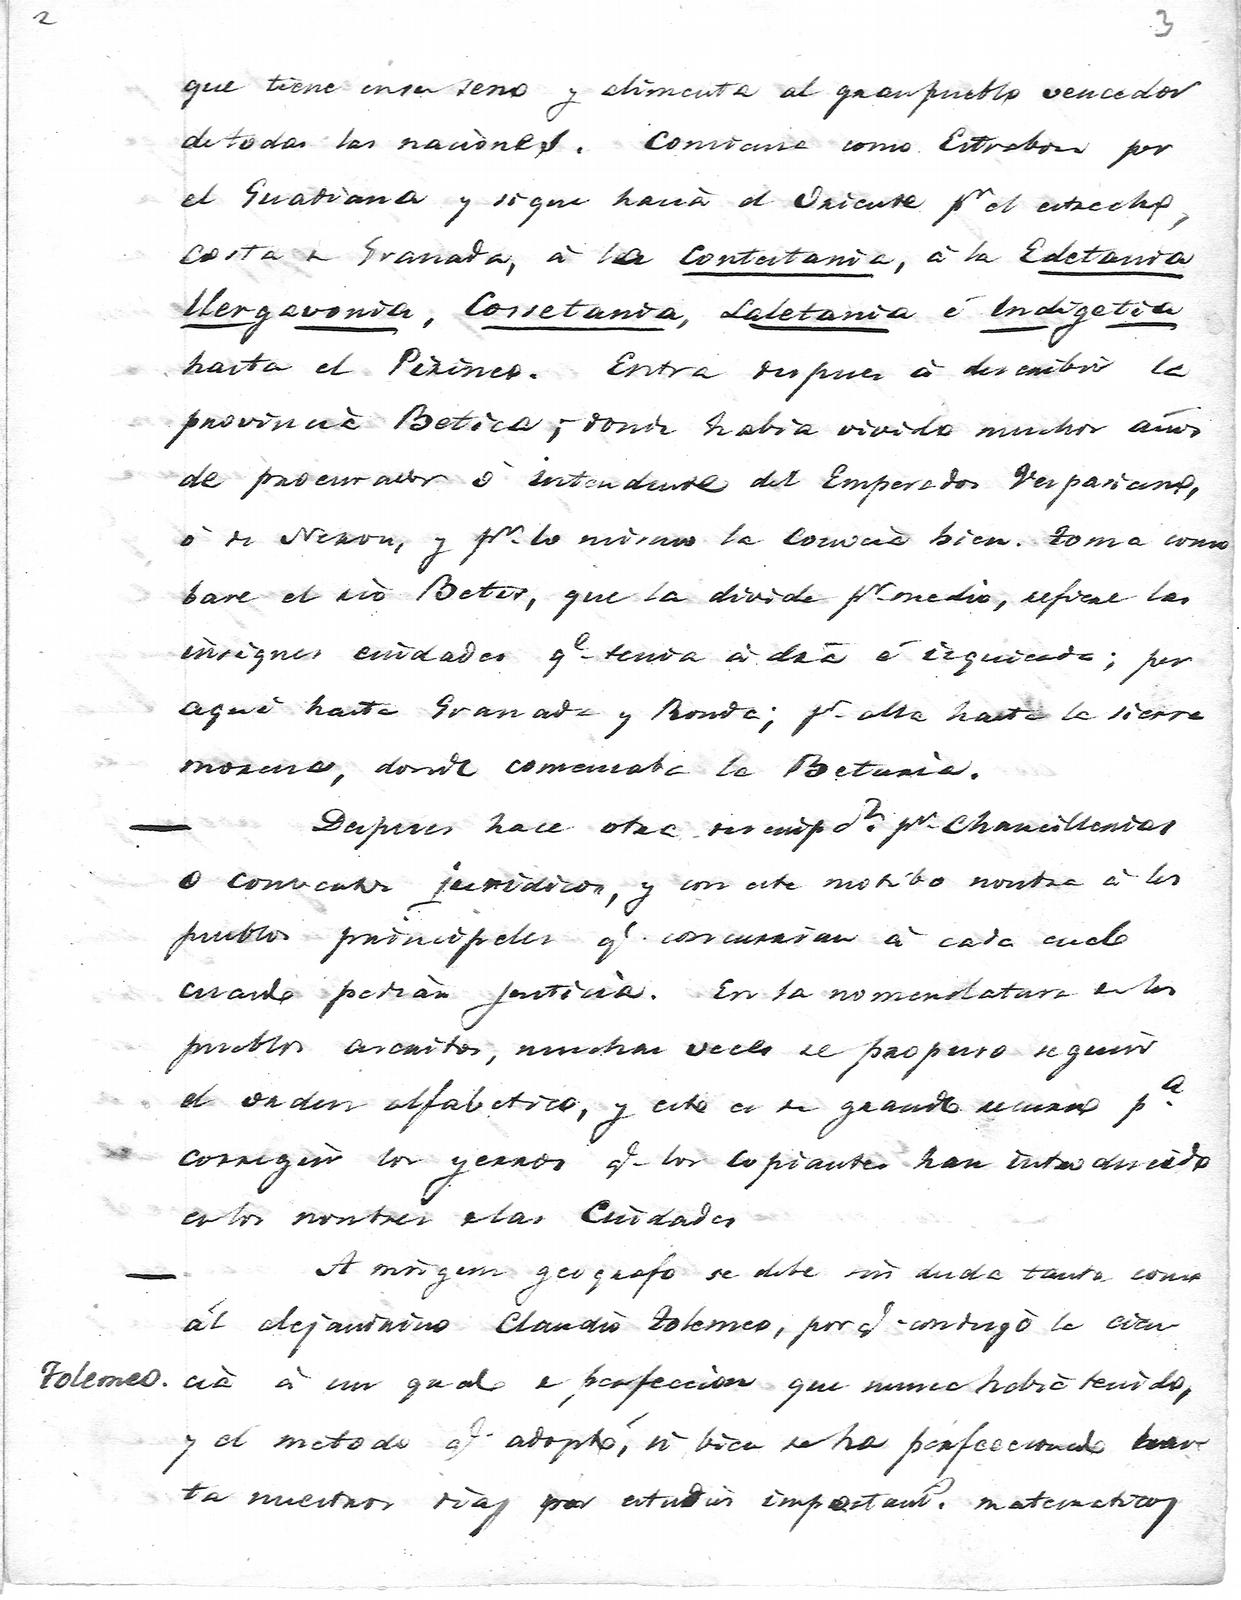 2
3
que tiene en su seno y alimenta al gran pueblo vencedor
de todas las naciones. Comienza como Estrabon por
el Guadiana y sigue hacia el Oriente pr el estrecho,
costa de Granada, à la Contestania, à la Edetania
Ilergavonia, Cossetania, Laletania é Indigetia
hasta el Pirineo. Entra despues à describir la
provincia Betica; donde habia vivido muchos años
de procurador ó intendente del Emperador Vespasiano,
ó de Neron, y pr lo mismo la conocia bien. Toma como
base el rio Betis, que la divide pr medio, refiere las
insignes ciudades qe tenia à dra é izquierda; por
aqui hasta Granada y Ronda; pr alla hasta la sierra
morena, donde comenzaba la Beturia.
Despues hace otra descripcn. pr Chancillerias
o conventos juridicos, y con este motibo nombra à los
pueblos principales qe concurrian à cada cual
cuando pedian justicia. En la nomenclatura de los
pueblos escritos, muchas veces se propuso seguir
el orden alfabetico, y esto es de grande recurso pa.
corregir los yerros qe los copiantes han introducido
en los nombres de las Ciudades
A ningun geografo se debe sin duda tanto como
al alejandrino Claudio Tolemeo, por qe condujo la cien-
Tolemeo. cia à un grado de perfeccion que nunca habia tenido,
y el metodo qe adoptó, si bien se ha perfeccionado has-
ta nuestros dias por estudios important.s matematicos